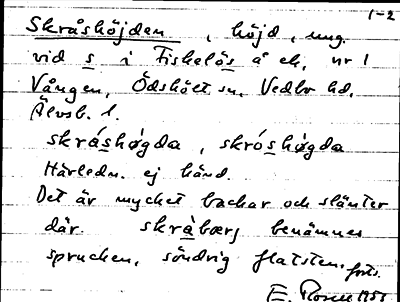 1-2
Skråshöjden, höjd, ung.
vid s i Fiskelös å ek, nr 1
Vången, Ödskölt sn, Vedbo hd,
Älvsb. l.
skrǻshøgda, skrósh​øgda
Härledn. ej känd.
Det är mycket backar och slänter
där. skråbærj benämnes
sprucken, söndrig flatsten. forts.
E. Rosen 1953